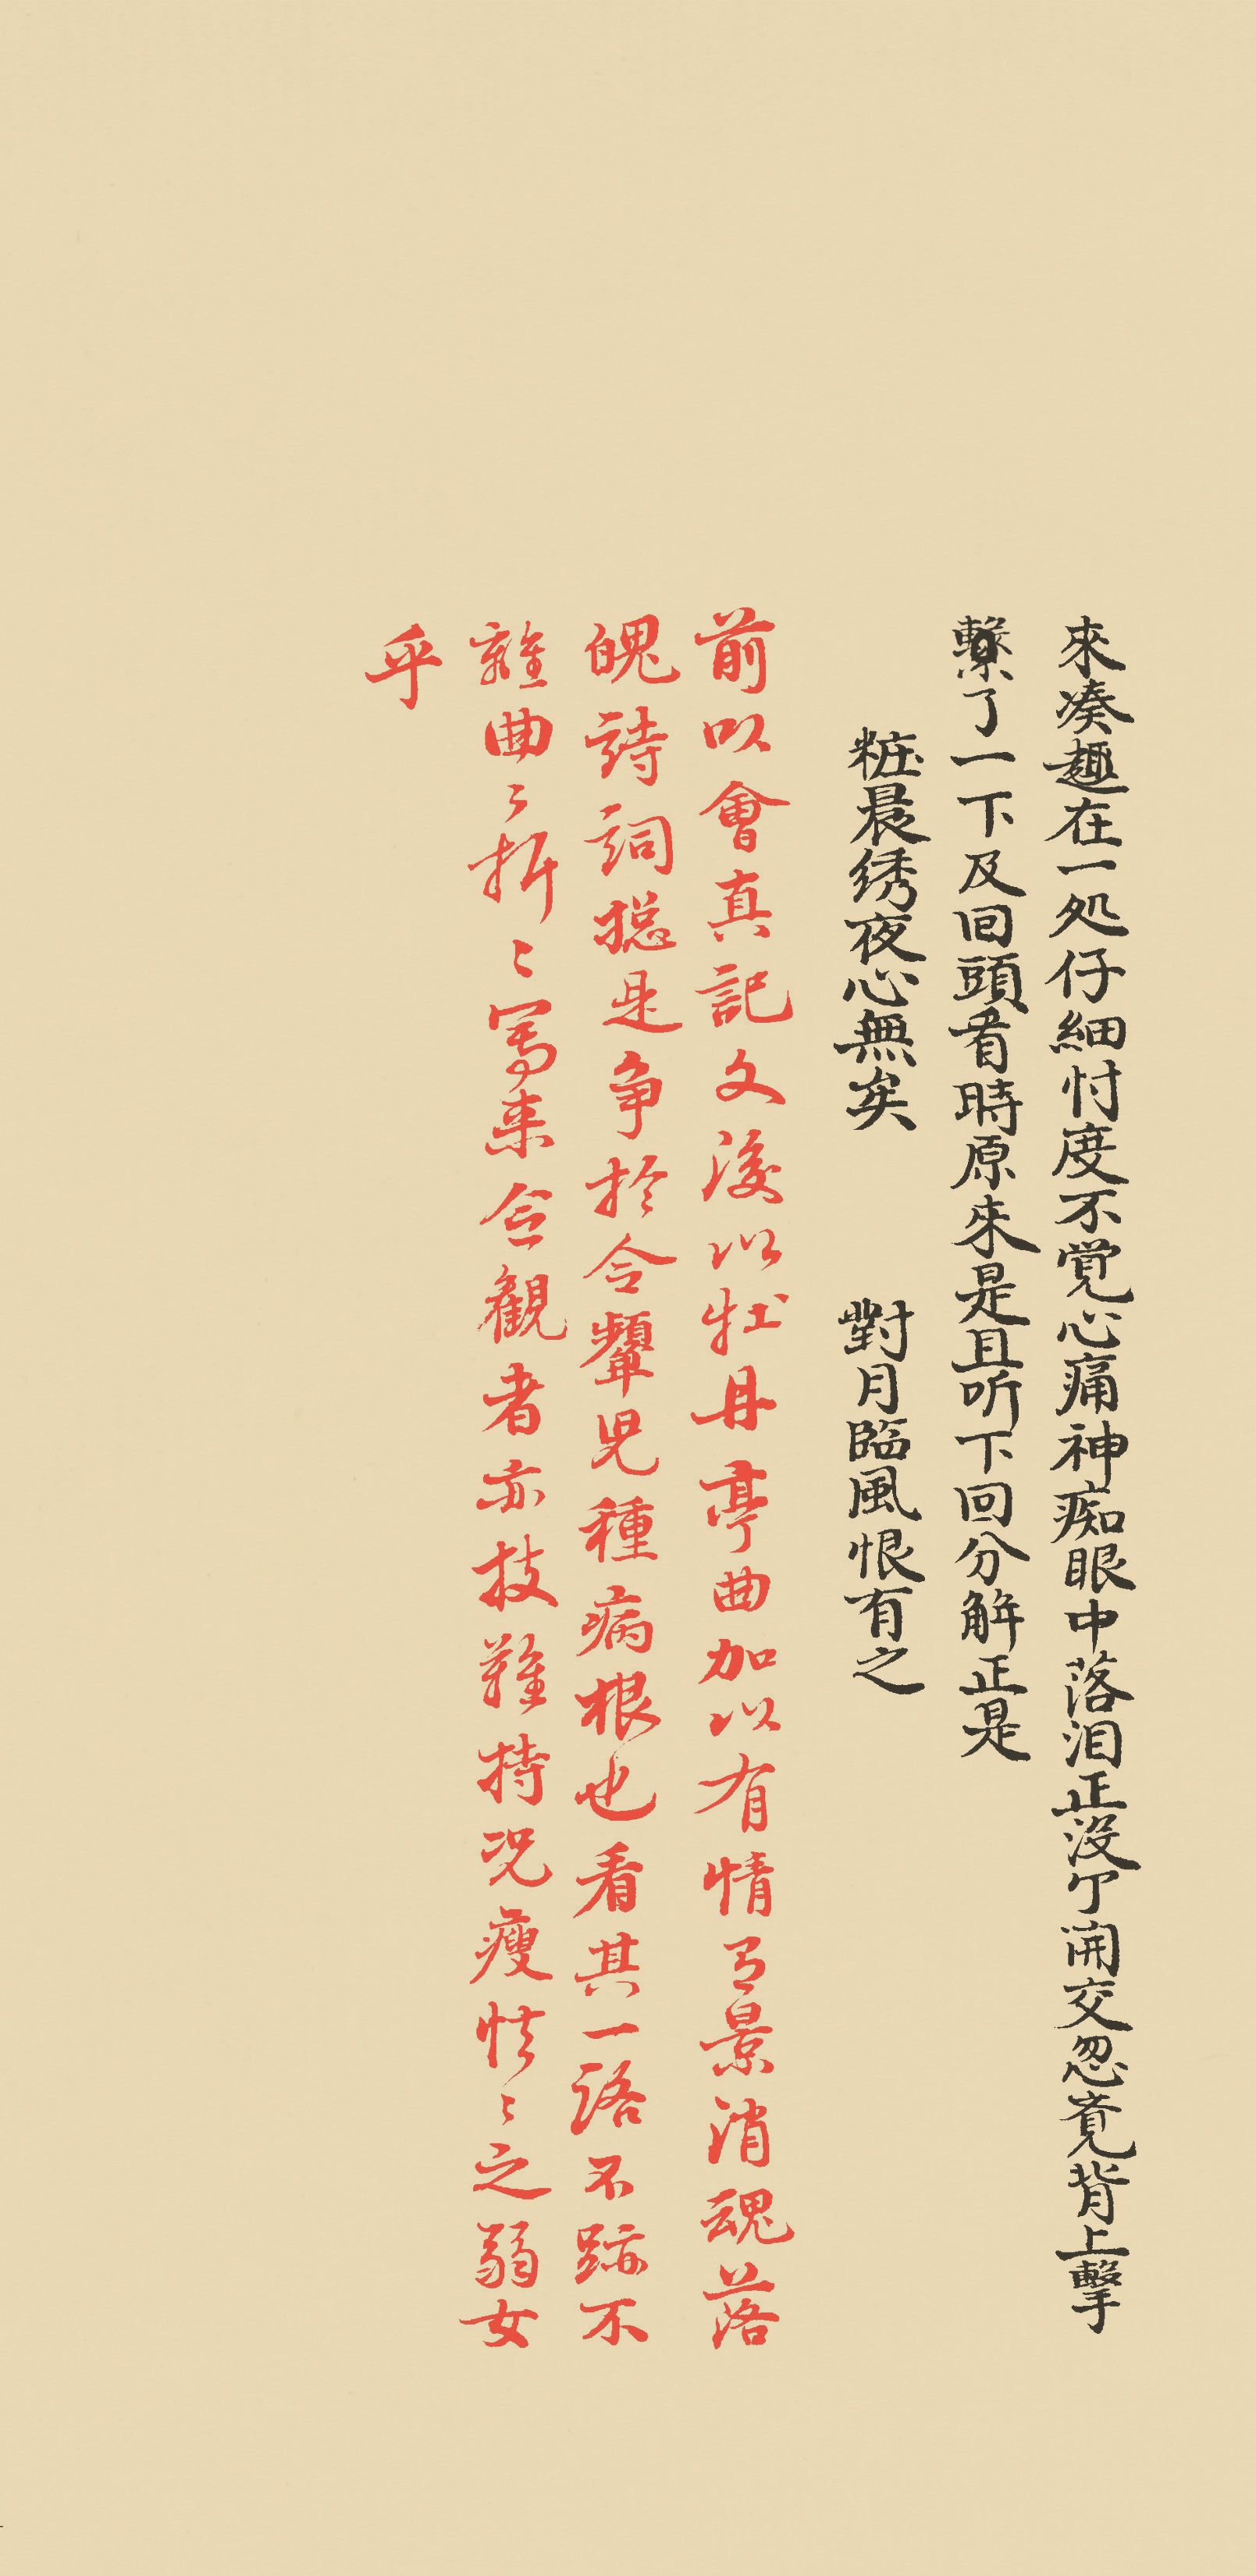 來凑趣在一処仔細忖度不覚心痛神痴眼中落泪正没个開交忽竟背上擊
繫了一下及回頭看時原來是且听下回分解正是
粧晨绣夜心無矣　　對月臨風恨有之
前以會真記文後以牡丹亭曲加以有情有景消魂落
魄詩詞摠是争扵令顰児種病根也看其一路不跡不
離曲〻折〻寫来令觀者亦技難持况瘦怯〻之弱女
乎